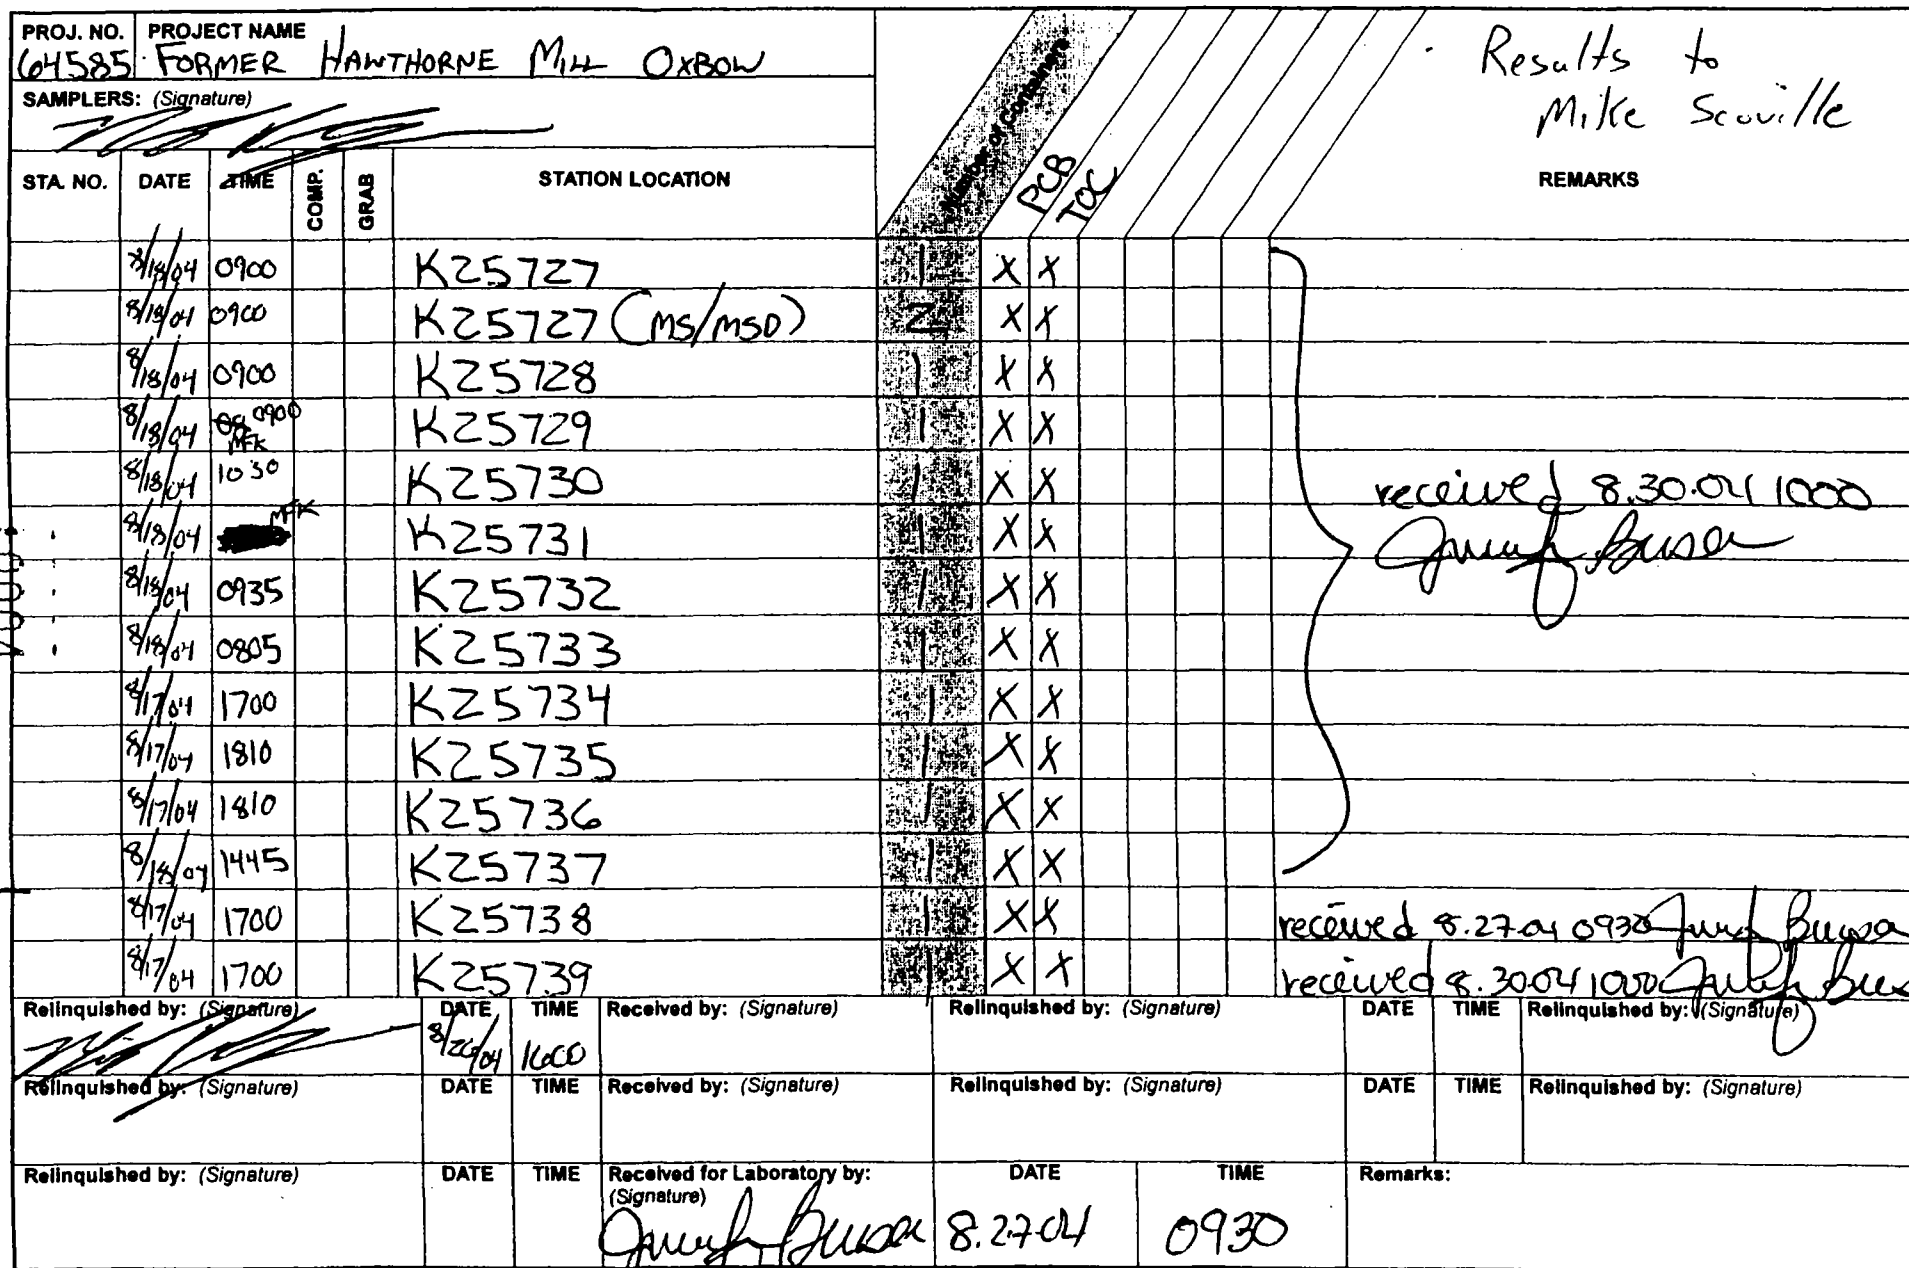 PROJ. NO. PROJECT NAME
64585 FORMER HAWTHORNE MILL OXBOW
Results to
Mike Scoville
SAMPLERS: (Signature)
STA. NO. DATE TIME COMP. GRAB STATION LOCATION Number of Containers PCB TOC REMARKS
8/18/04 0900 K25727 1 X X
8/18/04 0900 K25727 (MS/MSD) 2 X X
8/18/04 0900 K25728 1 X X
8/18/04 0900 MFK K25729 1 X X
8/18/04 1030 K25730 1 X X
received 8.30.04 1000
8/18/04 MFK K25731 1 X X
8/18/04 0935 K25732 1 X X
8/18/04 0805 K25733 1 X X
8/17/04 1700 K25734 1 X X
8/17/04 1810 K25735 1 X X
8/17/04 1810 K25736 1 X X
8/18/04 1445 K25737 1 X X
8/17/04 1700 K25738 1 X X received 8.27.04 0930
8/17/04 1700 K25739 1 X X received 8.30.04 1000
Relinquished by: (Signature) DATE TIME Received by: (Signature) Relinquished by: (Signature) DATE TIME Relinquished by: (Signature)
8/26/04 1600
Relinquished by: (Signature) DATE TIME Received by: (Signature) Relinquished by: (Signature) DATE TIME Relinquished by: (Signature)
Relinquished by: (Signature) DATE TIME Received for Laboratory by: DATE TIME Remarks:
(Signature)
8.27.04 0930